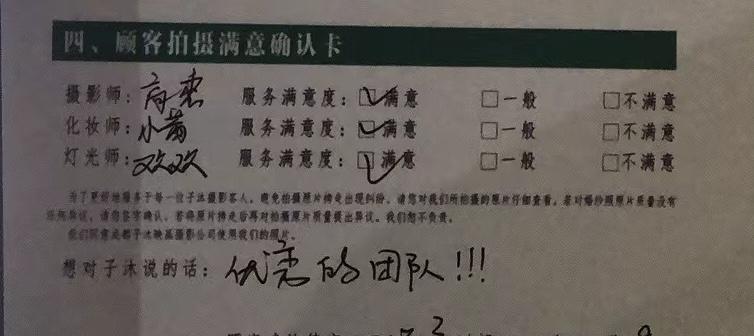 四、顾客拍摄满意确认卡
摄影师： 服务满意度：☑满意 □一般 □不满意
化妆师：小茜 服务满意度：☑满意 □一般 □不满意
灯光师：欢欢 服务满意度：☑满意 □一般 □不满意
为了更好地服务于每一位子沐摄影客人，避免拍摄原片拷走出现纠纷，请您对我们所拍摄的原片仔细查看，若对婚纱照原片质量没有
任何异议，请您签字确认。若将原片拷走后再对拍摄原片质量提出异议，我们恕不负责。
我们同意成都子沐映画摄影公司使用我们的照片。
想对子沐说的话：优秀的团队!!!